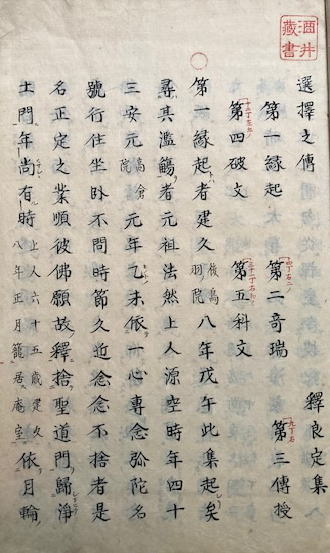 酒井藏書
選擇之傳 釋良定集
第一縁起 第二奇瑞 第三傳授
第四破文 第五科文
第一縁起者建久後鳥羽院八年戊午此集起矣
尋其濫觴者元祖法然上人源空時年四十
三安元高倉院元年乙未依一心專念弥陀名
號行住坐卧不問時節久近念念不捨者是
名正定之業順彼佛願故釋捨聖道門歸淨
土門年尚有時上人六十五歳建久八年正月籠居庵室依月輪